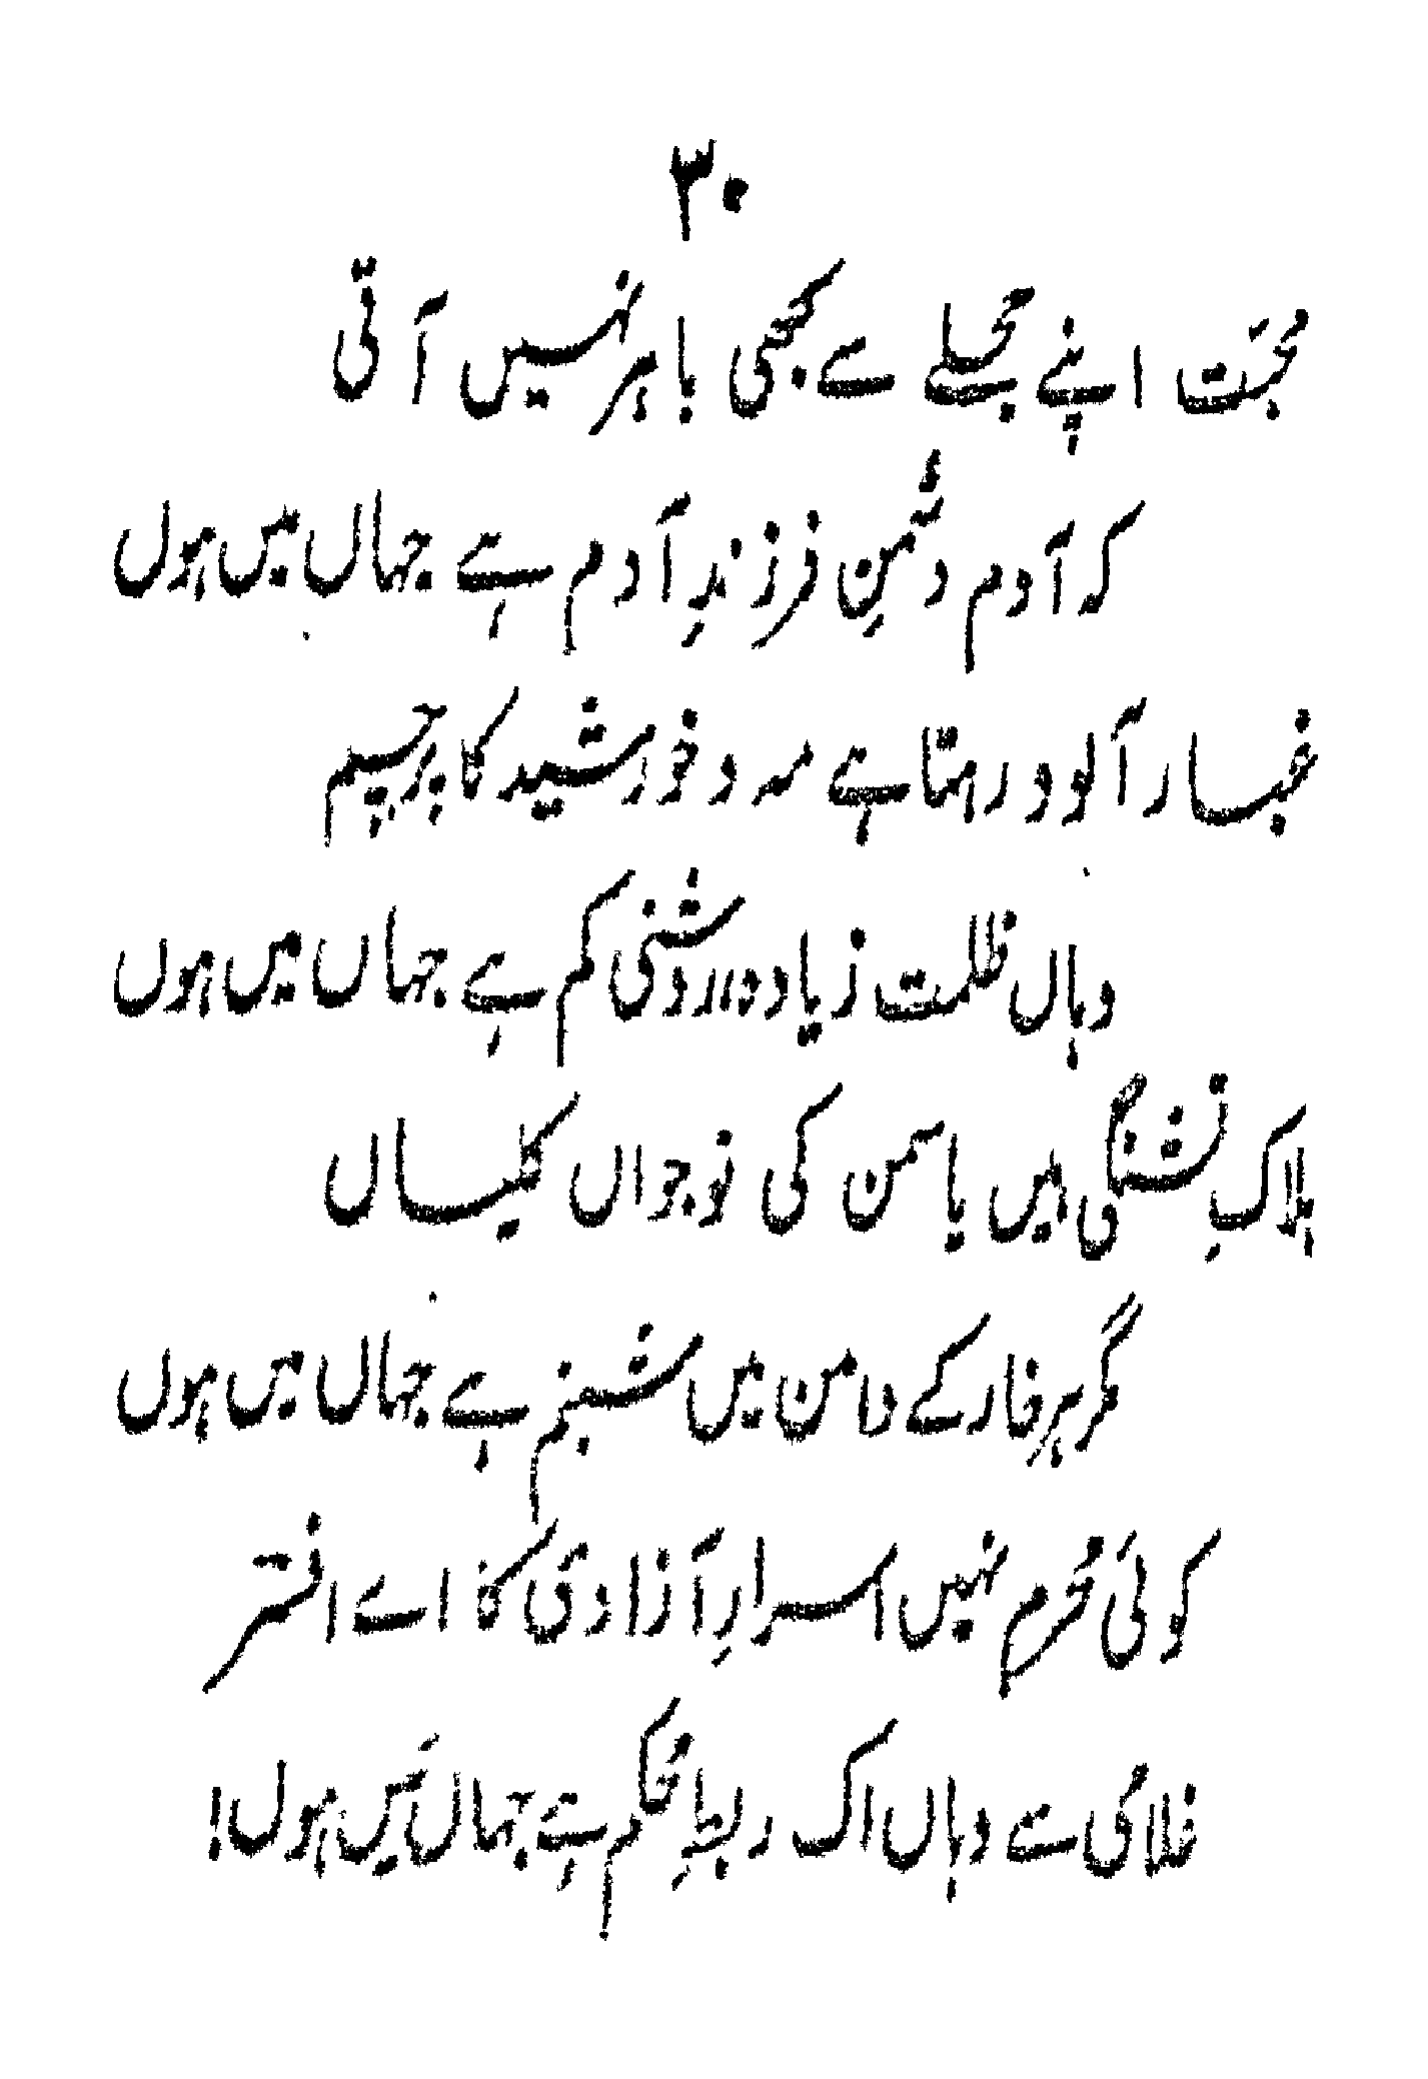 ۳۰
محبّت اپنے حجلے سے کبھی باہر نہیں آتی
کہ آدم دشمنِ فرزندِ آدم ہے جہاں میں ہوں
غبار آلود رہتا ہے مہ و خورشید کا پرچم
وہاں ظلمت زیادہ، روشنی کم ہے جہاں میں ہوں
ہلاکِ تشنگی ہیں یاسمن کی نوجواں کلیاں
مگر ہر خار کے دامن میں شبنم ہے جہاں میں ہوں
کوئی محرم نہیں اسرارِ آزادی کا اے اختر
غلامی سے وہاں اک ربطِ محکم ہے جہاں مَیں ہوں!